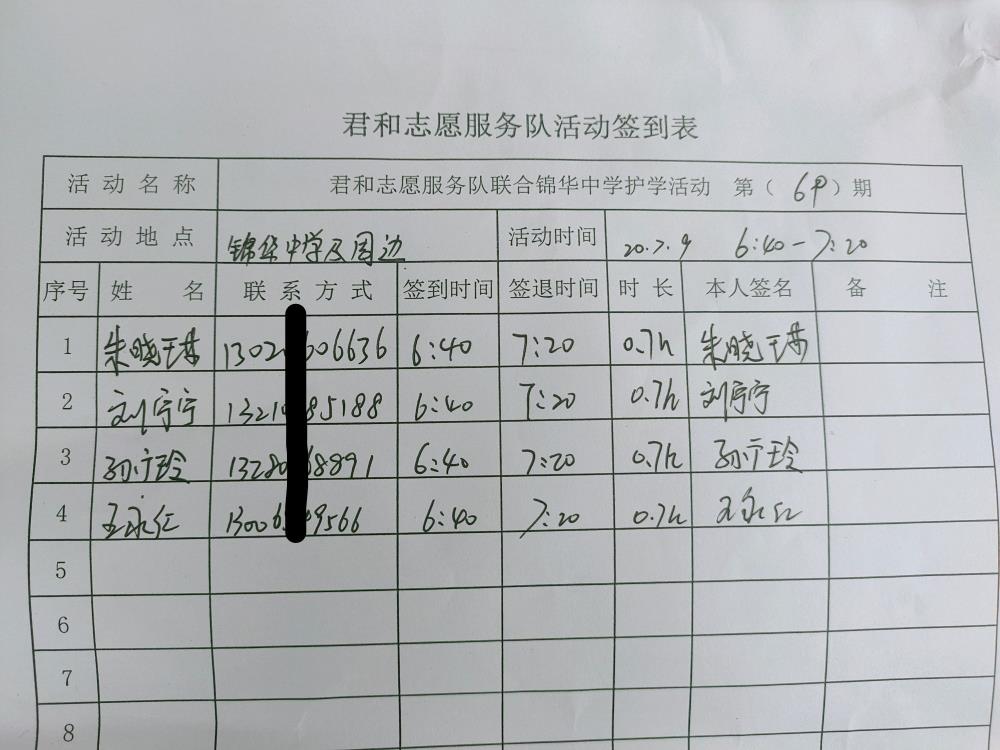 君和志愿服务队活动签到表
活动名称 君和志愿服务队联合锦华中学护学活动 第（69）期
活动地点 锦华中学及周边 活动时间 20.7.9 6:40-7:20
序号 姓名 联系方式 签到时间 签退时间 时长 本人签名 备注
1 朱晓琳 1302 606636 6:40 7:20 0.7h 朱晓琳
2 刘宁宁 1321 85188 6:40 7:20 0.7h 刘宁宁
3 孙宁玲 1328 68891 6:40 7:20 0.7h 孙宁玲
4 王永仁 1300 9566 6:40 7:20 0.7h 王永仁
5
6
7
8